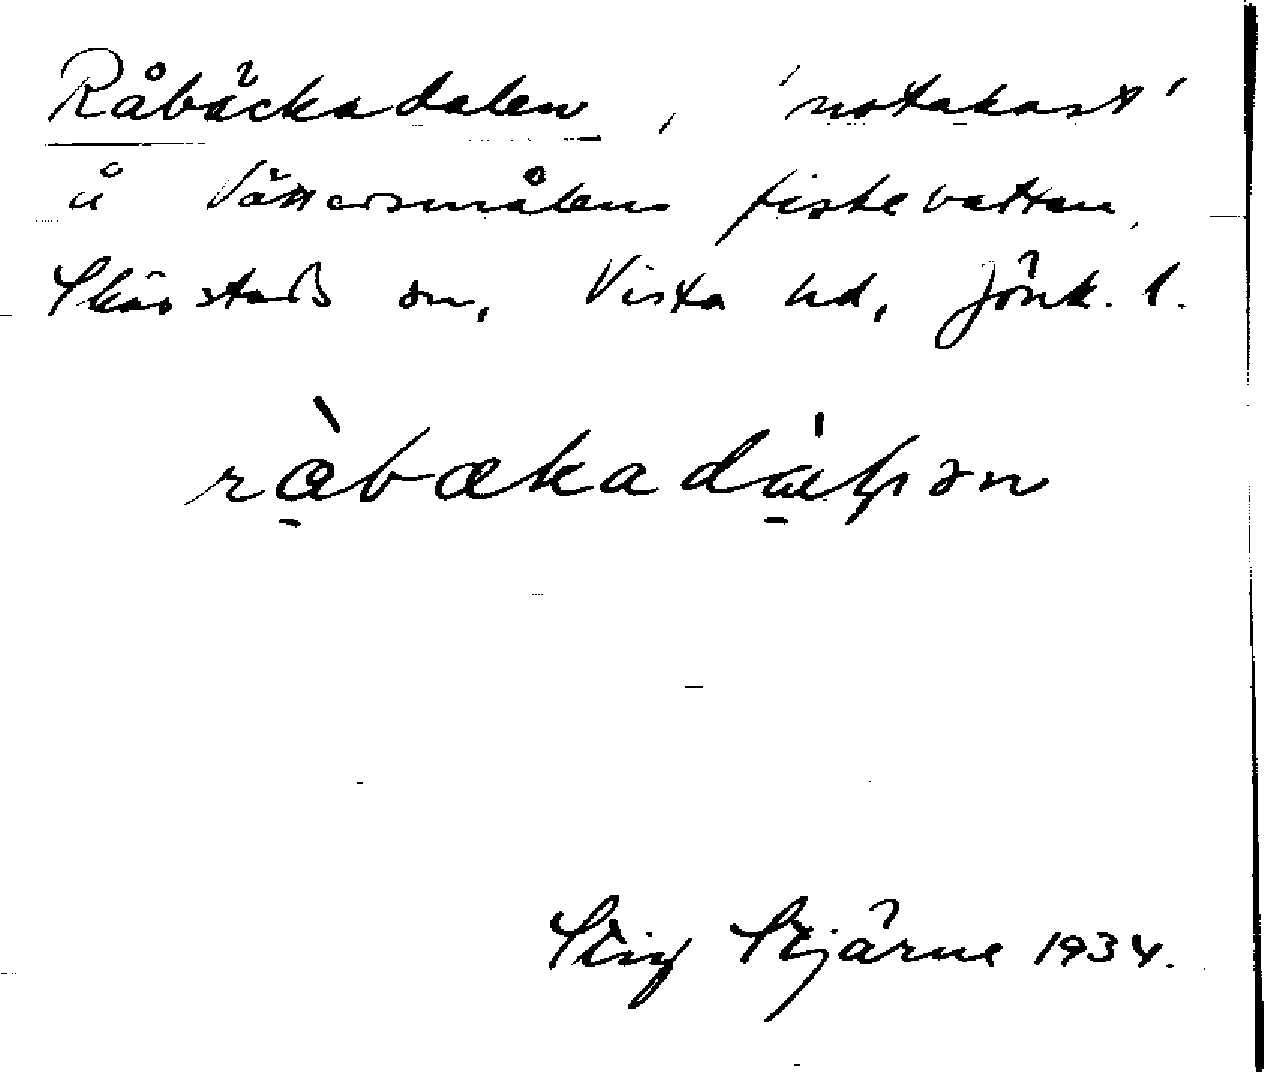 Råbäckadalen, 'notakast'
å Vättersmålens fiskevatten,
Skärstads sn, Vista hd, Jönk. l.
ràbækadα̍ḷən
Stig Stjärne 1934.